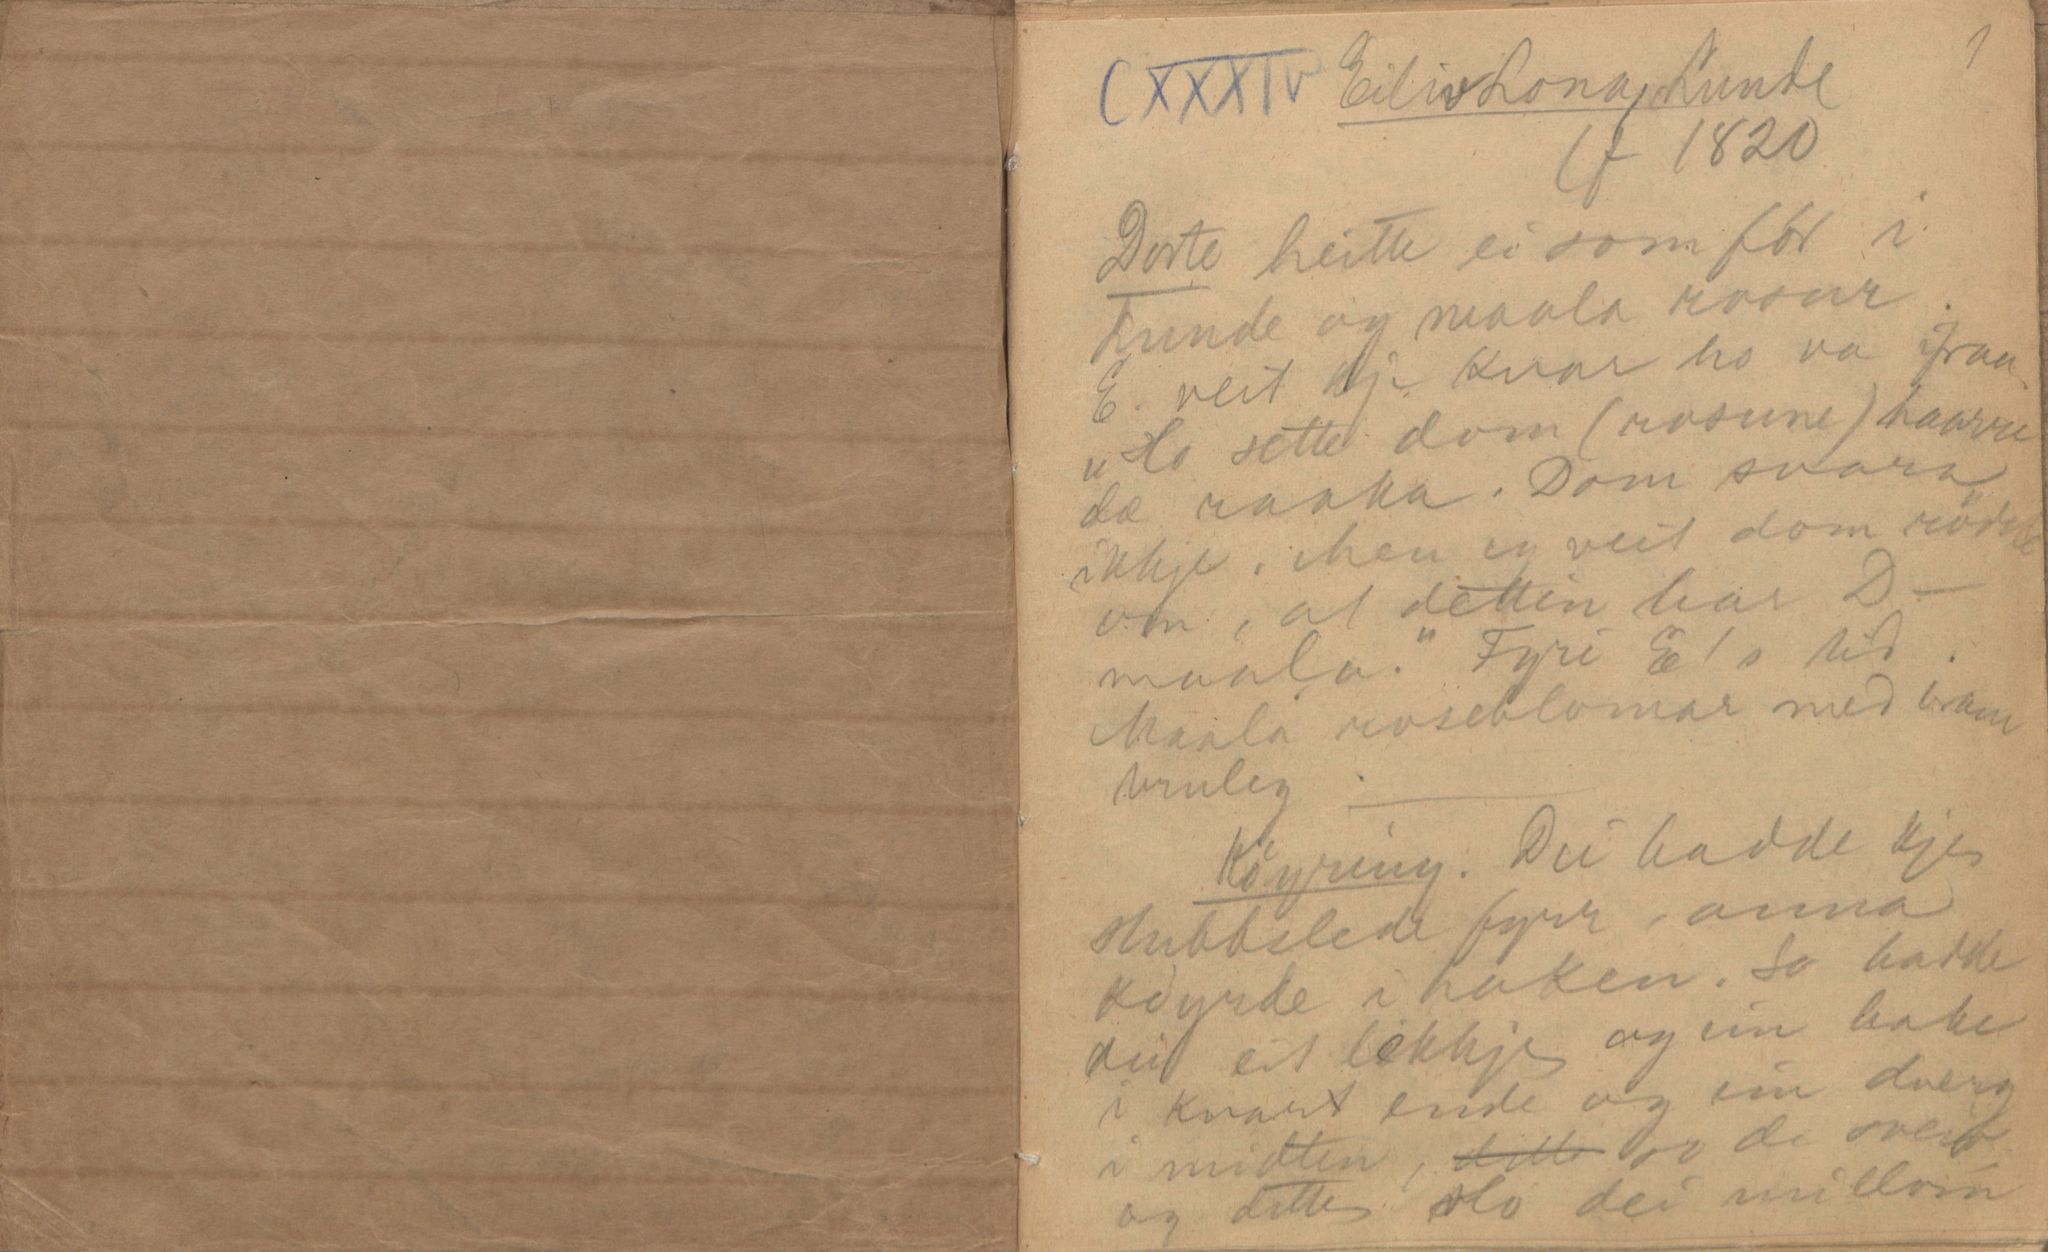 1
CXXXIV Eiliv Lona, Kunde
(f 1820
Dorte heitte ei som fór i
Kunde og maala rosur.
E. veit kje kvar ho va ifraa.
"Ho sette dom (rosune) haarre
dæ raaka. Dom svara
ikkje. Men eg veit dom rödde
om, at dettin har D—
maala." Fyri E's tid.
Maala roseblomar med
bruleg.
Köyring. Dei hadde kje
stubbslede fyrr, anna
köyrde i haken. So hadde
dei eit lekkje og ein hake
i kvart ende og ein dverg
i midten, so de sveiv
og dette slo dei millom